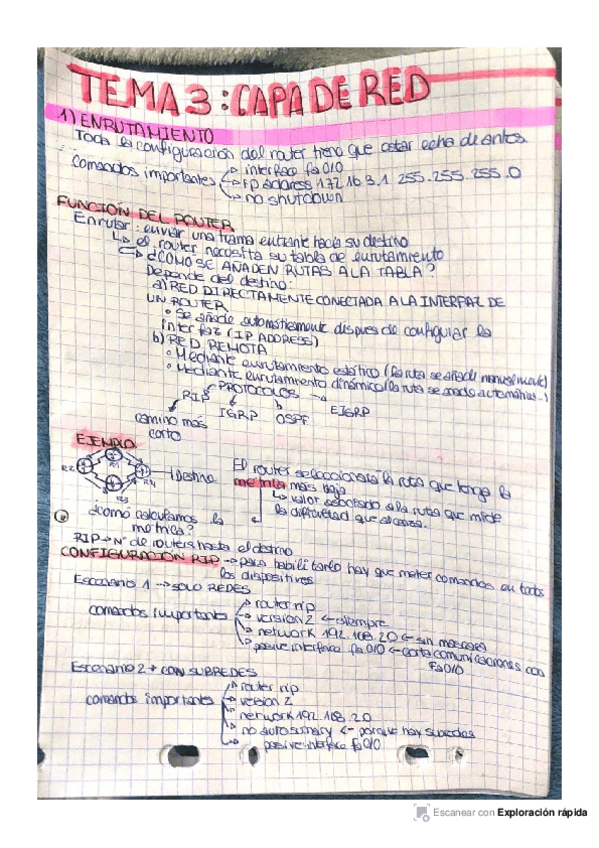 TEMA 3: CAPA DE RED
1) ENRUTAMIENTO
Toda la configuración del router tiene que estar echa de antes
Comandos importantes → interface fa0/0
→ ip address 172.16.3.1 255.255.255.0
→ no shutdown
FUNCIÓN DEL ROUTER
Enrutar: enviar una trama entrante hacia su destino
↳ el router necesita su tabla de enrutamiento
↳ ¿CÓMO SE AÑADEN RUTAS A LA TABLA?
Depende del destino:
a) RED DIRECTAMENTE CONECTADA A LA INTERFAZ DE
UN ROUTER
• Se añade automáticamente despues de configurar la
interfaz (IP ADDRESS)
b) RED REMOTA
• Mediante enrutamiento estático (la ruta se añade manualmente)
• Mediante enrutamiento dinámico (la ruta se añade
PROTOCOLOS
RIP IGRP OSPF EIGRP
camino más
corto
EJEMPLO
R1
R2
R3
R4
Destino
El router seleccionará la ruta que tenga la
metrica más baja
↳ valor asociado a la ruta que mide
la dificultad que
¿Cómo calculamos la
metrica?
RIP → Nº de routers hasta el destino
CONFIGURACIÓN RIP → para habilitarlo hay que meter comandos en todos
los dispositivos
Escenario 1 → SOLO REDES
comandos importantes → router rip
→ version 2 ← siempre
→ network 192.168.20 ← sin mascara
→ passive interface fa0/0 ← corta comunicaciones con
Fa0/0
Escenario 2 → CON SUBREDES
comandos importantes → router rip
→ version 2
→ network 192.168.20
→ no autosumary ← porque hay subredes
→ passive interface fa0/0
Escanear con Exploración rápida